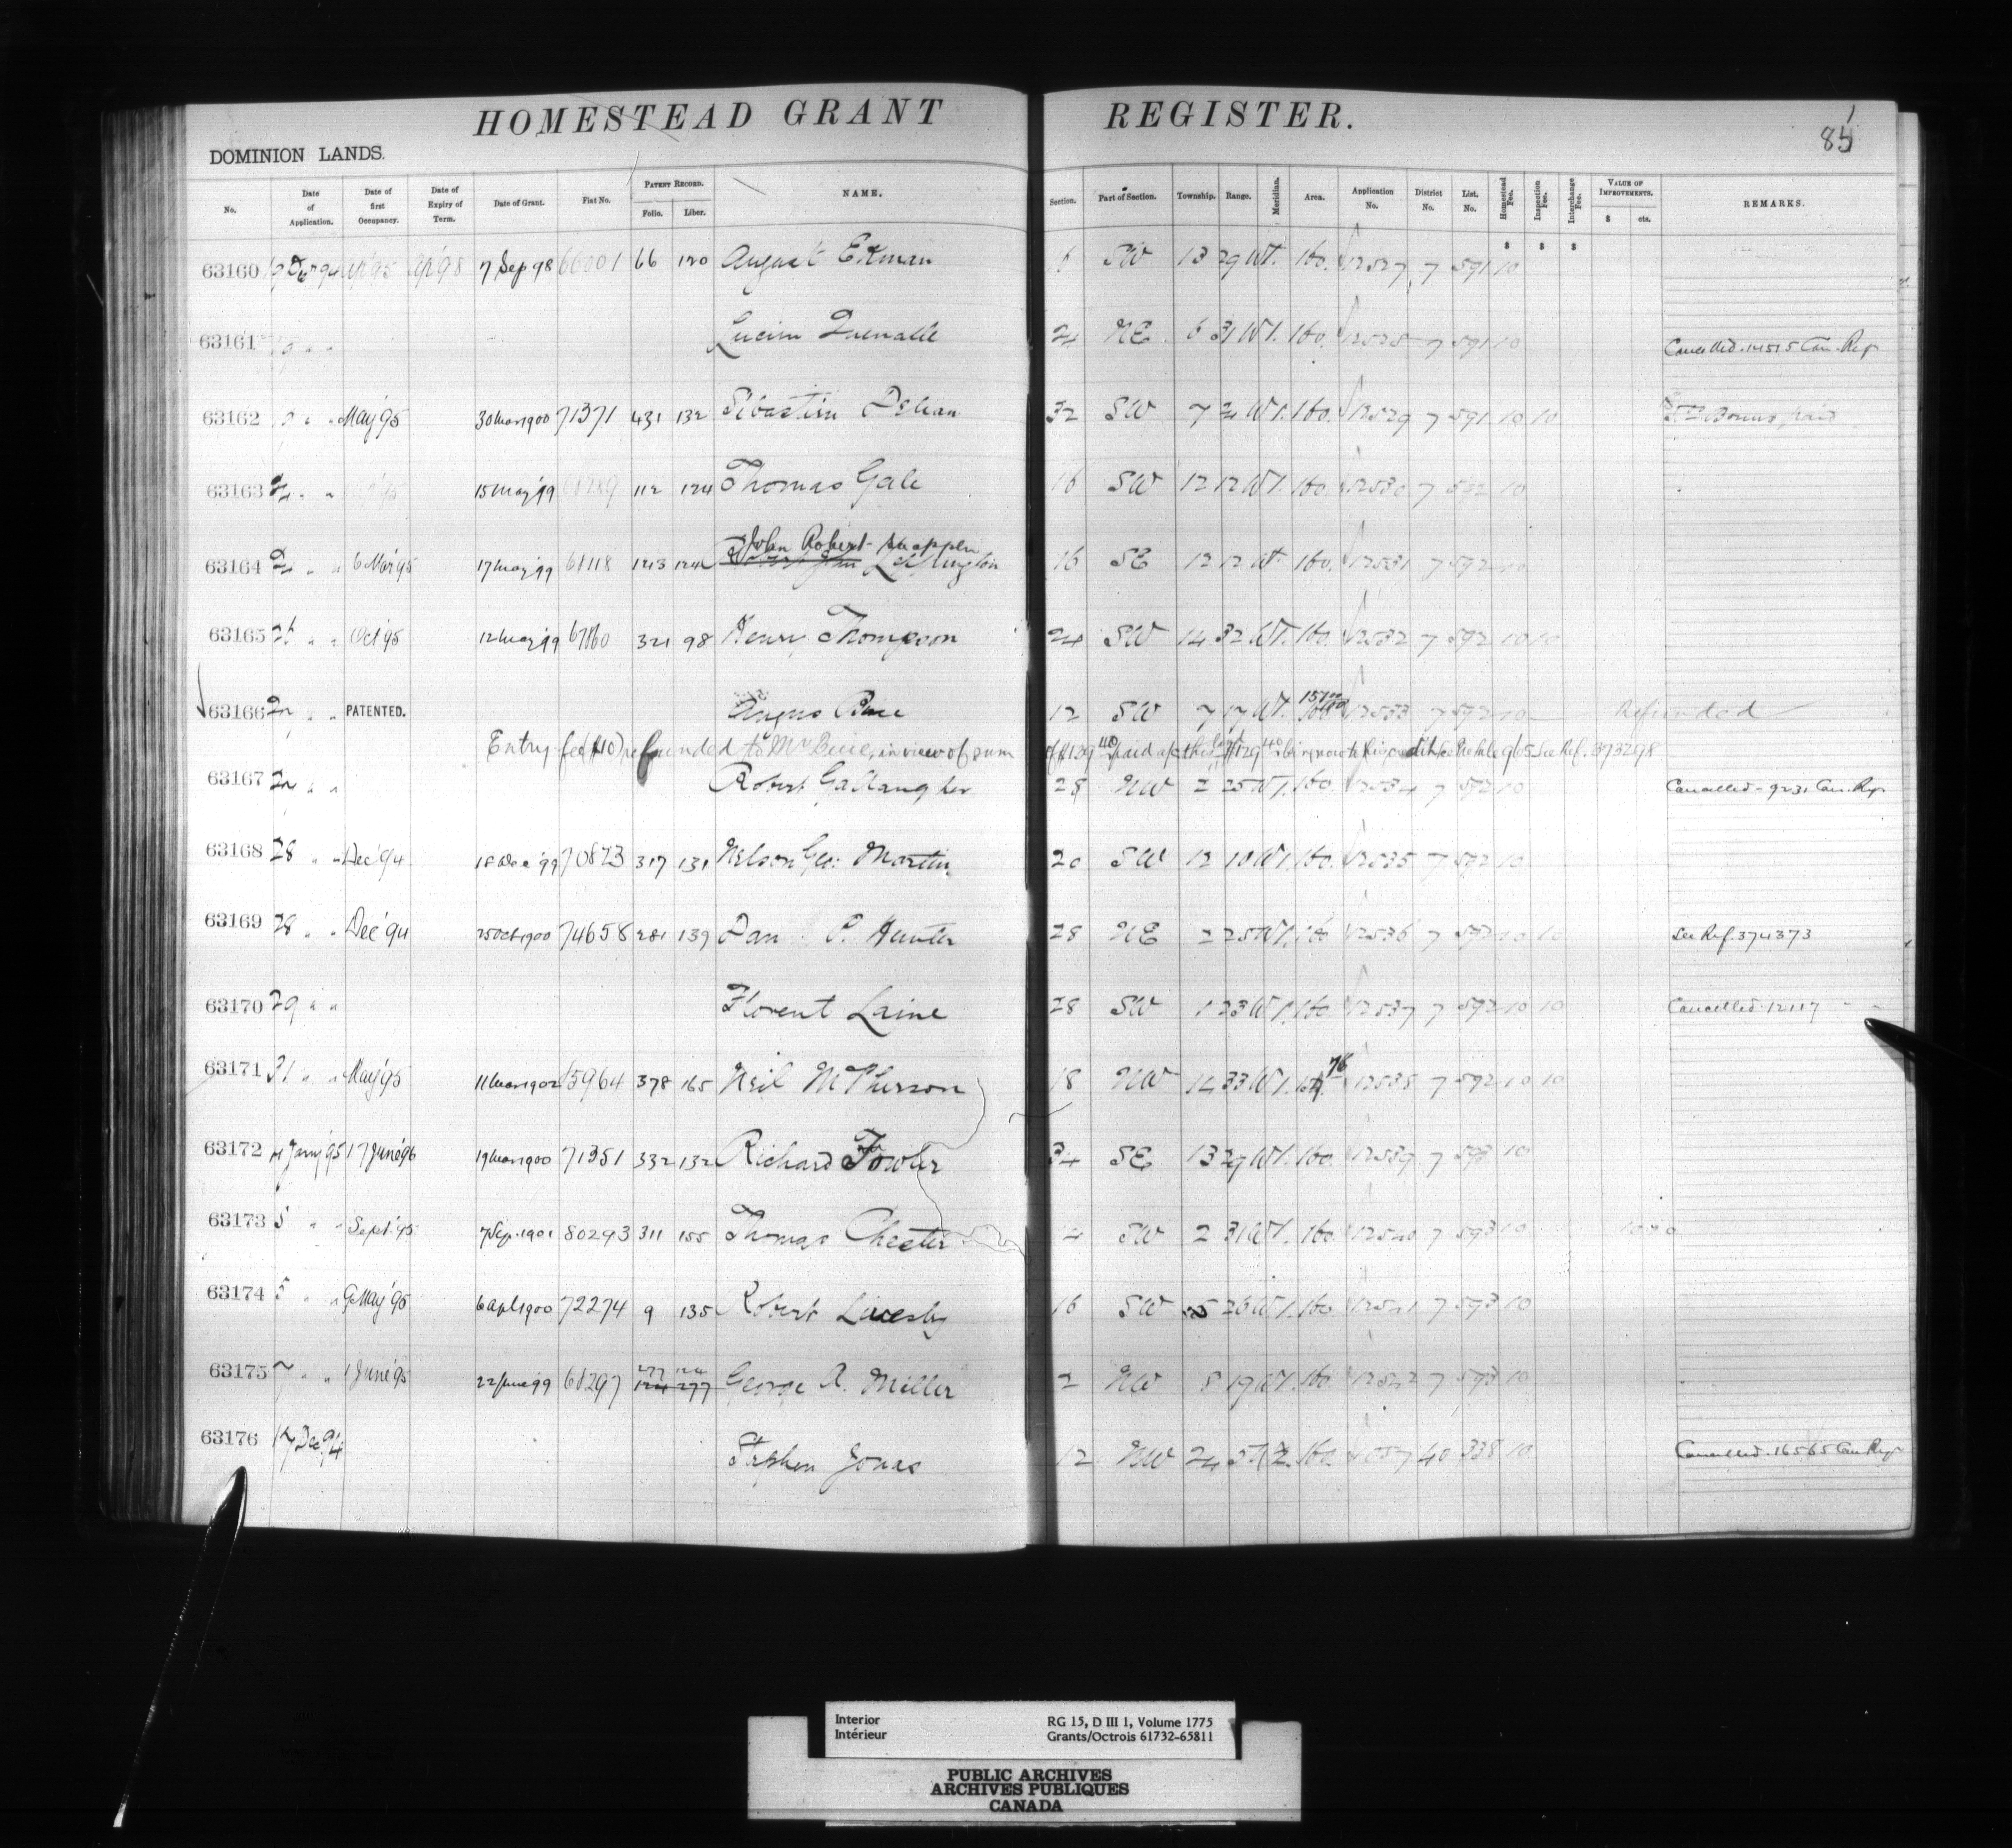 HOMESTEAD GRANT REGISTER.
85
DOMINION LANDS.
No. Date of Application. Date of first Occupancy. Date of Expiry of Term. Date of Grant. Fiat No. PATENT RECORD. Folio. Liber. NAME. Section. Part of Section. Township. Range. Meridian. Area. Application No. District No. List. No. Homestead Fee. Inspection Fee. Interchange Fee. VALUE OF IMPROVEMENTS. $ cts. REMARKS.
$ $ $
63160 Ap'95 Ap'98 7 Sep 98 66001 66 120 August Ekman SW 13 29 W1. 160. 12527 7 591 10
63161 Lucien NE 6 31 W1. 160. 12528 7 591 10 Cancelled. 14515 Can. Reg
63162 May'95 30 Mar 1900 71371 431 132 32 SW 7 W1. 160. 12529 7 591 10 10 Bonus paid
63163 15 May '99 112 124 Thomas Gale 16 SW 12 12 W1. 160. 12530 7 592 10
John Robert
63164 6 Mar'95 17 May 99 68118 123 124 16 SE 12 12 W1. 160. 12531 7 592 10
63165 26 " " Oct'95 12 May 99 67860 321 98 Henry Thompson 24 SW 14 32 W1. 160. 12532 7 592 10 10
63166 " " PATENTED. Angus Buie 12 SW 7 17 W1. 160 12533 7 592 10 Refunded
Entry fee ($10) refunded to Mr Buie, in view of sum of $139.40 paid See Ref. 373298
63167 " " Robert Gallaugher 28 NW 2 25 W1. 160. 12534 7 592 10 Cancelled - 9231 Can. Reg.
63168 28 " " Dec'94 18 Dec '99 70873 317 131 Nelson Geo: Martin 20 SW 12 10 W1. 160. 12535 7 592 10
63169 28 " " Dec'94 25 Oct 1900 74658 281 139 Dan P. Hunter 28 NE 2 25 W1. 160 12536 7 592 10 10 See Ref. 374373
63170 29 " " Florent Laine 28 SW 1 23 W1. 160. 12537 7 592 10 10 Cancelled. 12117 " "
63171 31 " " May'95 11 Mar 1902 378 165 Neil McPherson 18 NW 14 33 W1. 12538 7 592 10 10
63172 4 Jany'95 17 June'96 19 Mar 1900 71351 332 132 Richard Fowler 34 SE 13 29 W1. 160. 12539 7 593 10
63173 5 " " Sept.'95 7 Sep. 1901 80293 311 155 Thomas Chester 4 SW 2 31 W1. 160. 12540 7 593 10
63174 5 " " 9 May'95 6 Apl 1900 72274 9 135 Robert Livesly 16 SW 5 26 W1. 160 12541 7 593 10
277 124
63175 7 " " 1 June'95 22 June 99 68297 124 277 George A. Miller 2 NW 8 19 W1. 160. 12542 7 593 10
63176 Dec. 94 Stephen Jonas 12 NW 24 160. 1057 40 338 10 Cancelled. 16565 Can. Reg
Interior
Intérieur
RG 15, D III 1, Volume 1775
Grants/Octrois 61732-65811
PUBLIC ARCHIVES
ARCHIVES PUBLIQUES
CANADA